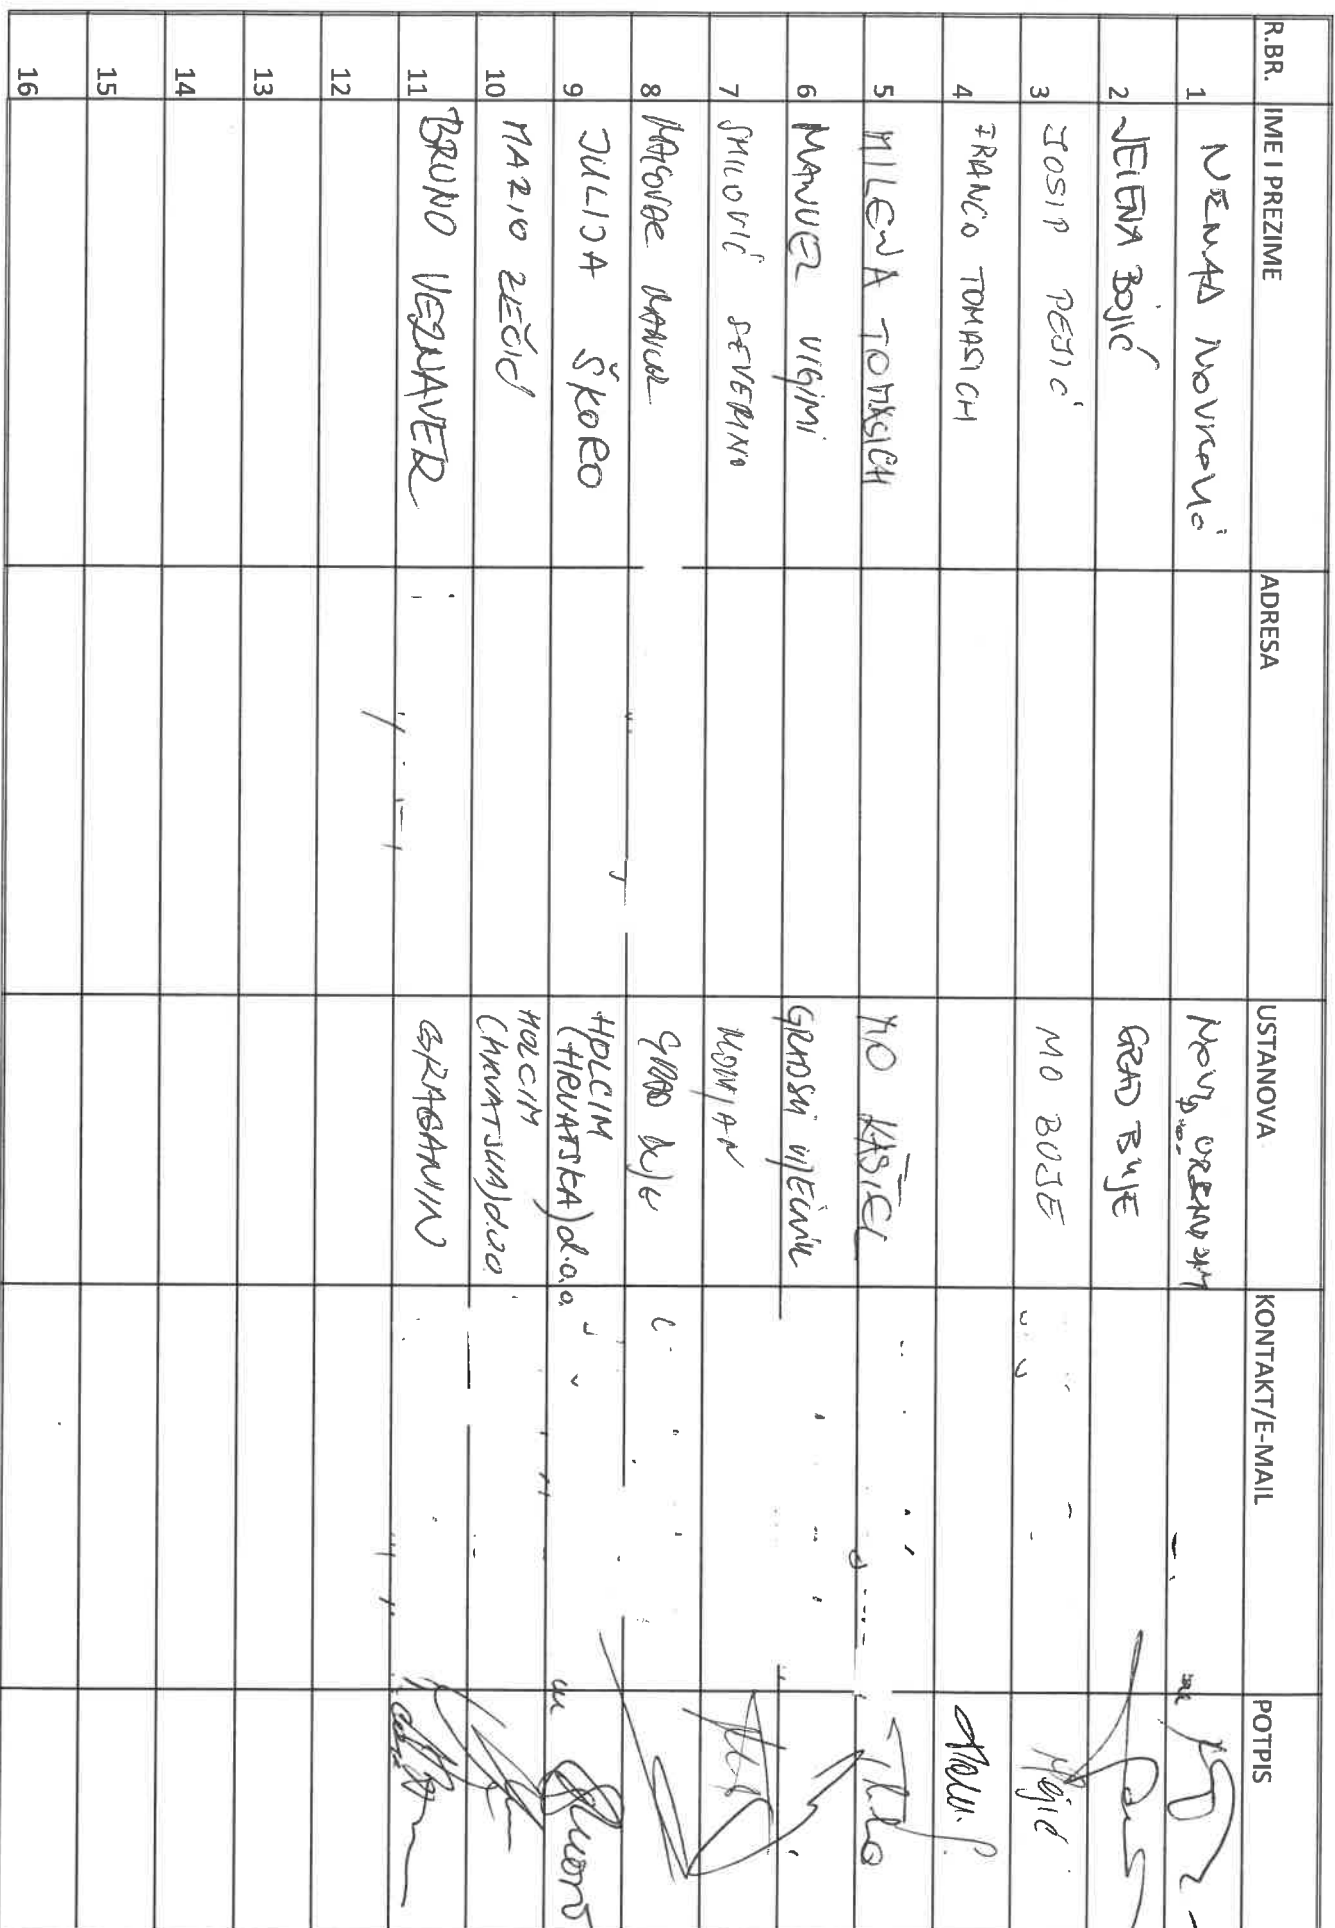 R.BR. IME I PREZIME ADRESA USTANOVA KONTAKT/E-MAIL POTPIS
1 NENAD
2 JELENA BOJIĆ GRAD BUJE
3 JOSIP PEJIĆ MO BUJE Pejić
4 FRANCO TOMASICH
5 MILENA TOMASICH MO KAŠTEL
6 MANUEL VIGINI GRADSKI VIJEĆNIK
7 SMILOVIĆ SEVERINO MOMJAN
8 GRAD BUJE
9 JULIJA ŠKORO HOLCIM
(HRVATSKA) d.o.o.
10 MARIO ZEČIĆ HOLCIM
(HRVATSKA) d.o.o
11 BRUNO VEZNAVER GRAĐANIN
12
13
14
15
16